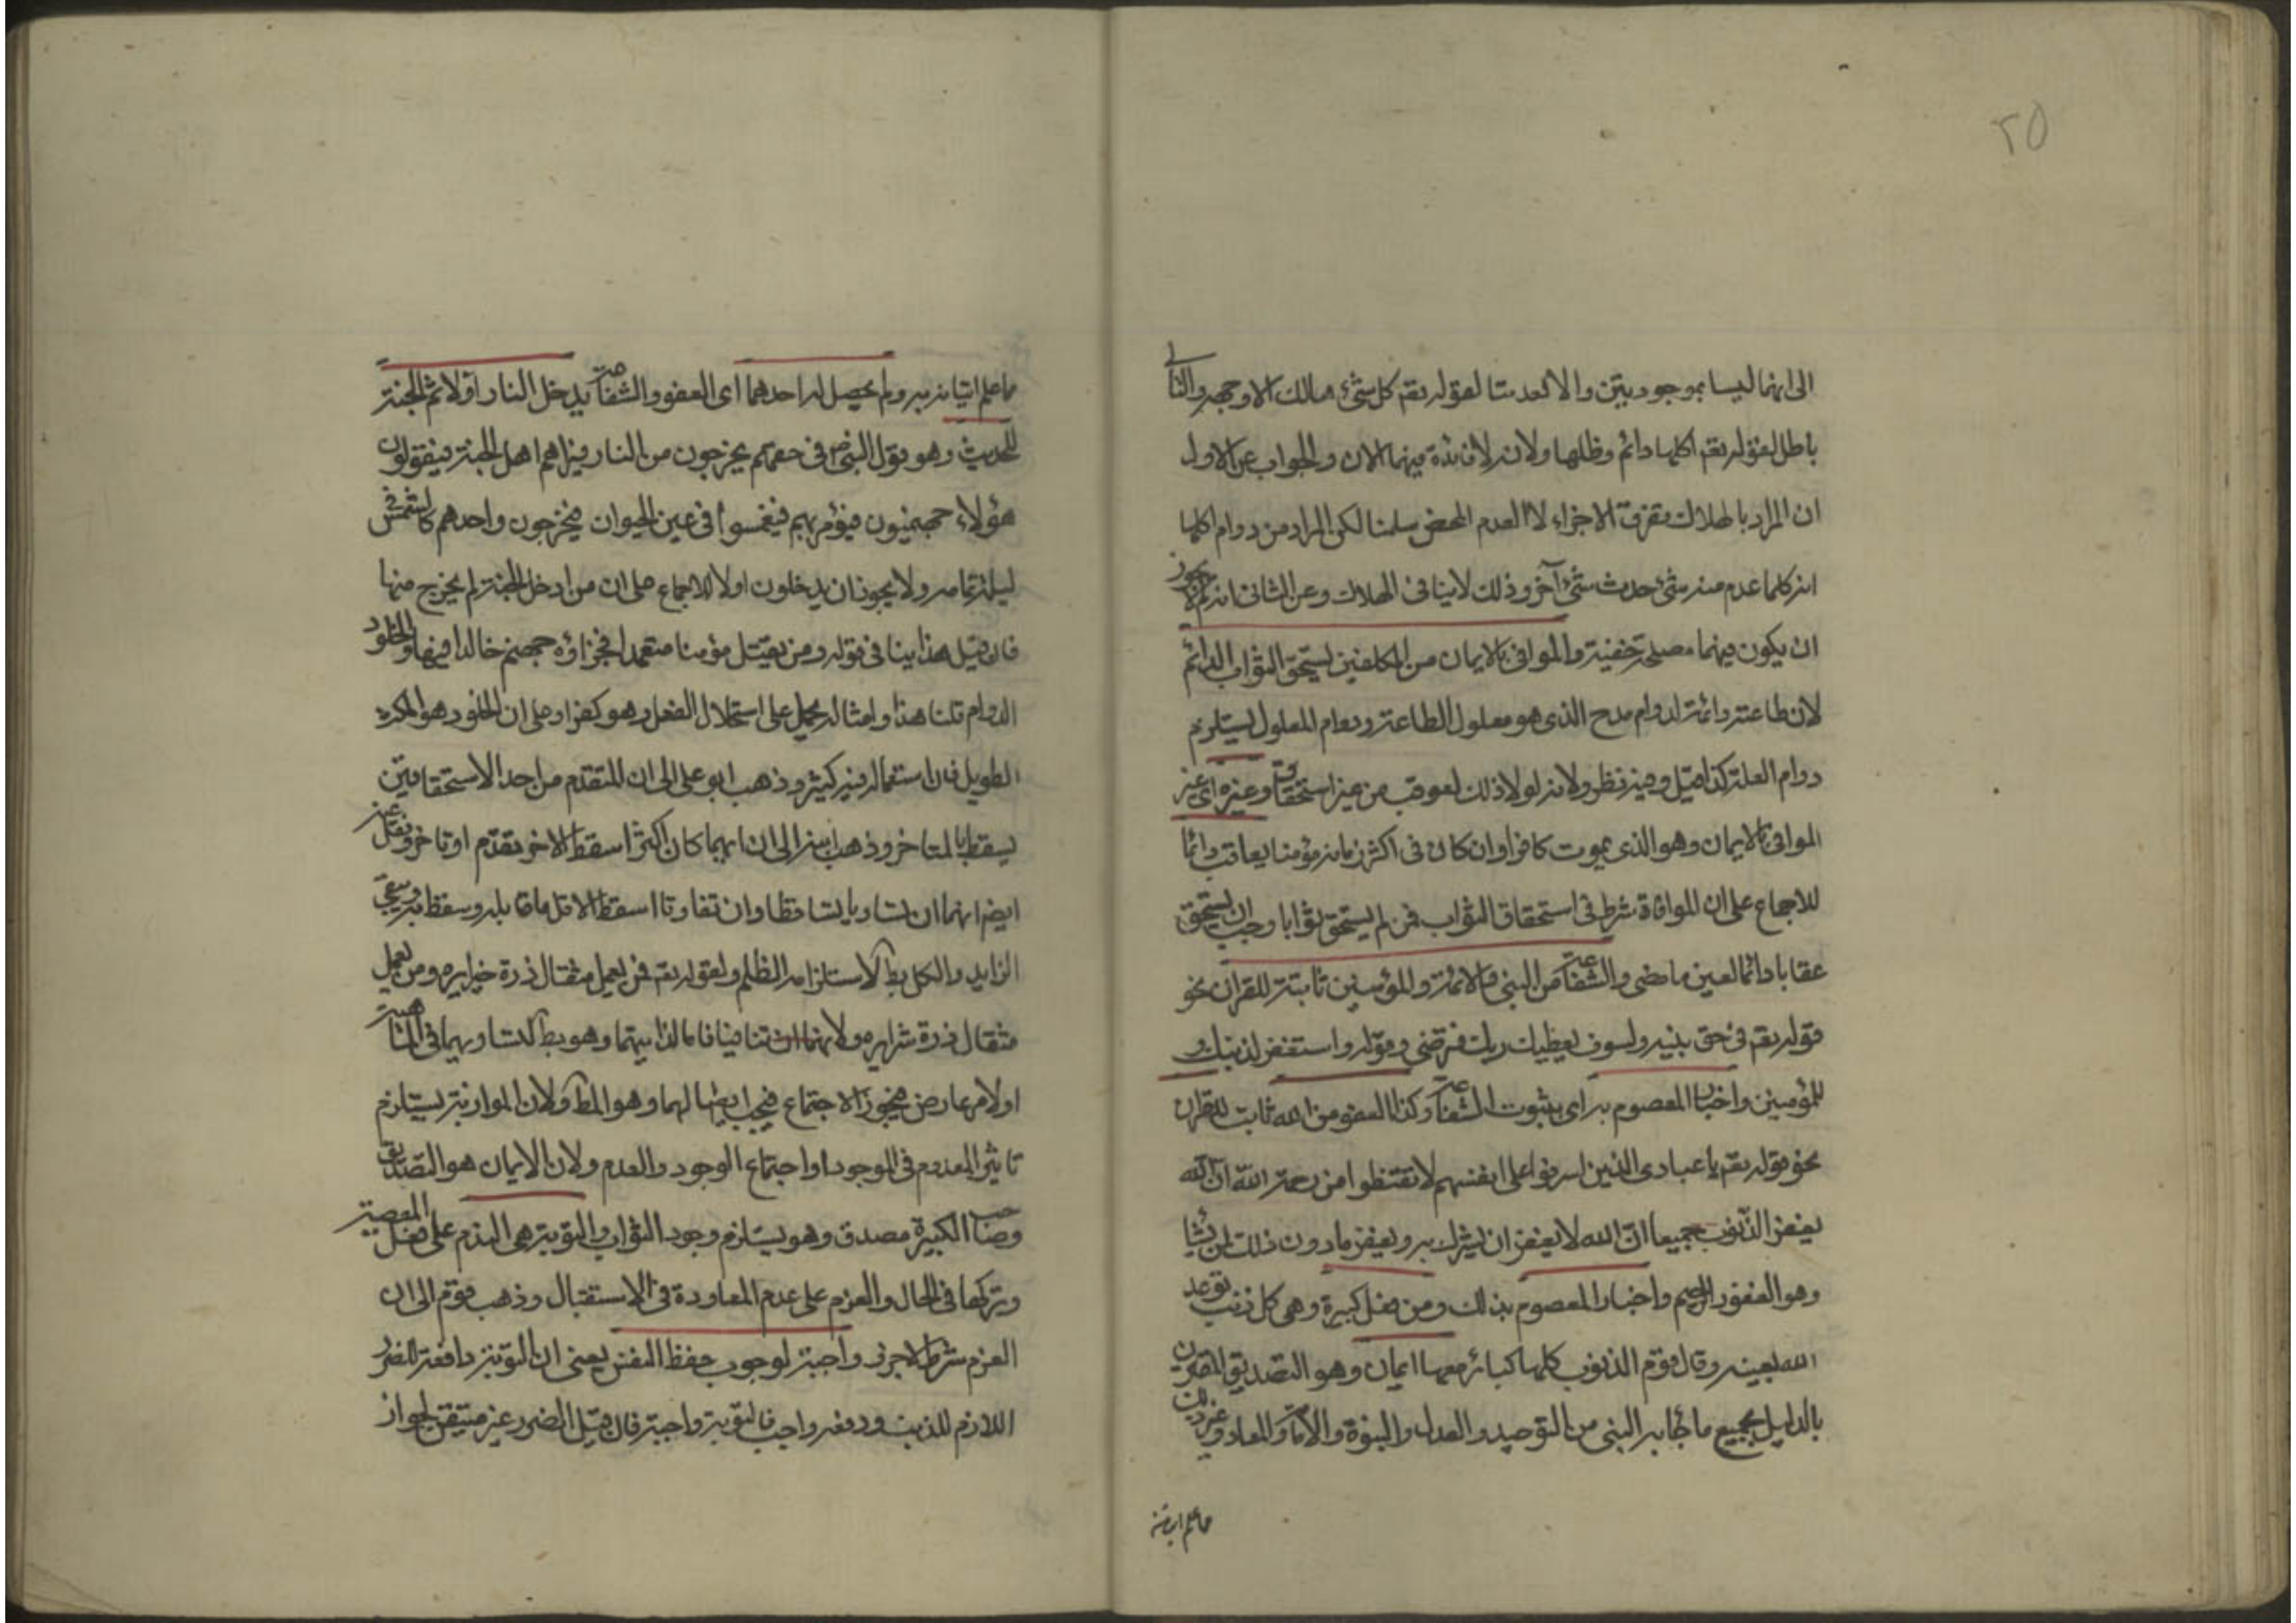 ٢٥
الى انهما ليسا بموجودتين والا لعدمتا لقوله تقم كل شئ هالك الا وجهه والتالى
باطل لقوله تقم اكلها دائم وظلها ولانه لا فائدة فيهما الان والجواب عن الاول
ان المراد بالهلاك تفرق الاجزاء لا العدم المحض سلمنا لكن المراد من دوام اكلها
انه كلما عدم منه شئ حدث شئ آخر وذلك لا ينافى الهلاك وعن الثانى انه لم لا يجوز
ان يكون فيهما مصلحة خفية والموافى بالايمان من المكلفين يستحق الثواب الدائم
لان طاعته دائمة لدوام مدح الذى هو معلول الطاعة ودوام المعلول يستلزم
دوام العلة كذا قيل وفيه نظر ولانه لولا ذلك لعوقب من غير استحقاق وغيره اى غير
الموافى بالايمان وهو الذى يموت كافرا وان كان فى اكثر زمانه مؤمنا يعاقب دائما
للاجماع على ان الموافاة شرط فى استحقاق الثواب فمن لم يستحق ثوابا وجب ان يستحق
عقابا دائما لعين ما مضى والشفاعة من النبى والائمة وللمؤمنين ثابتة للقران نحو
قوله تقم فى حق نبيه ولسوف يعطيك ربك فترضى وقوله واستغفر لذنبك و
للمؤمنين واخبار المعصوم به اى بثبوت الشفاعة وكذا العفو من الله ثابت للقران
نحو قوله تقم يا عبادى الذين اسرفوا على انفسهم لا تقنطوا من رحمة الله ان الله
يغفر الذنوب جميعا ان الله لا يغفر ان يشرك به ويغفر ما دون ذلك لمن يشا
وهو الغفور الرحيم واخبار المعصوم بذلك ومن فعل كبيرة وهى كل ذنب توعد
الله بعينه وقال قوم الذنوب كلها كبائر معها ايمان وهو التصديق المقرون
بالدليل بجميع ما جاء به النبى من التوحيد والعدل والنبوة والامامة والمعاد وغير ذلك
ما علم اتيانه
ما علم اتيانه به ولم يحصل له احدهما اى العفو والشفاعة يدخل النار اولا ثم الجنة
للحديث وهو قول النبى ص فى حقهم يخرجون من النار فيراهم اهل الجنة فيقولون
هؤلاء جهنميون فيؤمر بهم فيغمسوا فى عين الحيوان فيخرجون واحدهم كالشمس فى
ليلة تمامه ولا يجوز ان يدخلون اولا للاجماع على ان من ادخل الجنة لم يخرج منها
فان قيل هذا ينافى قوله ومن يقتل مؤمنا متعمدا فجزاؤه جهنم خالدا فيها والخلود
الدوام قلنا هذا وامثاله يحمل على استحلال الفعل وهو كفر او على ان الخلود هو المكث
الطويل فان استعماله فيه كثير وذهب ابو على الى ان المتقدم من احد الاستحقاقين
يسقط بالمتاخر وذهب ابنه الى ان ايهما كان اكثر اسقط الاخر تقدم او تاخر ونقل عنه
ايضا انهما ان تساويا تساقطا وان تفاوتا اسقط الاقل ما قابله وسقط
الزايد والكل بط لاستلزامه الظلم ولقوله تقم فمن يعمل مثقال ذرة خيرا يره ومن يعمل
مثقال ذرة شرا يره ولانهما ان تنافيا فاما لذاتيهما وهو بط لتساويهما فى الماهية
او لامر عارض فيجوز الاجتماع فيجب ايصالهما وهو المط ولان الموازنة يستلزم
تاثير المعدوم فى الموجود او اجتماع الوجود والعدم ولان الايمان هو التصديق
وصاحب الكبيرة مصدق وهو يستلزم وجود الثواب والتوبة هى الندم على فعل المعصية
وتركها فى الحال والعزم على عدم المعاودة فى الاستقبال وذهب قوم الى ان
العزم شرط لا جزء واجبة لوجوب حفظ النفس يعنى ان التوبة دافعة للضرر
اللازم للذنب ودفعه واجب فالتوبة واجبة فان قيل الضرر غير متيقن لجواز